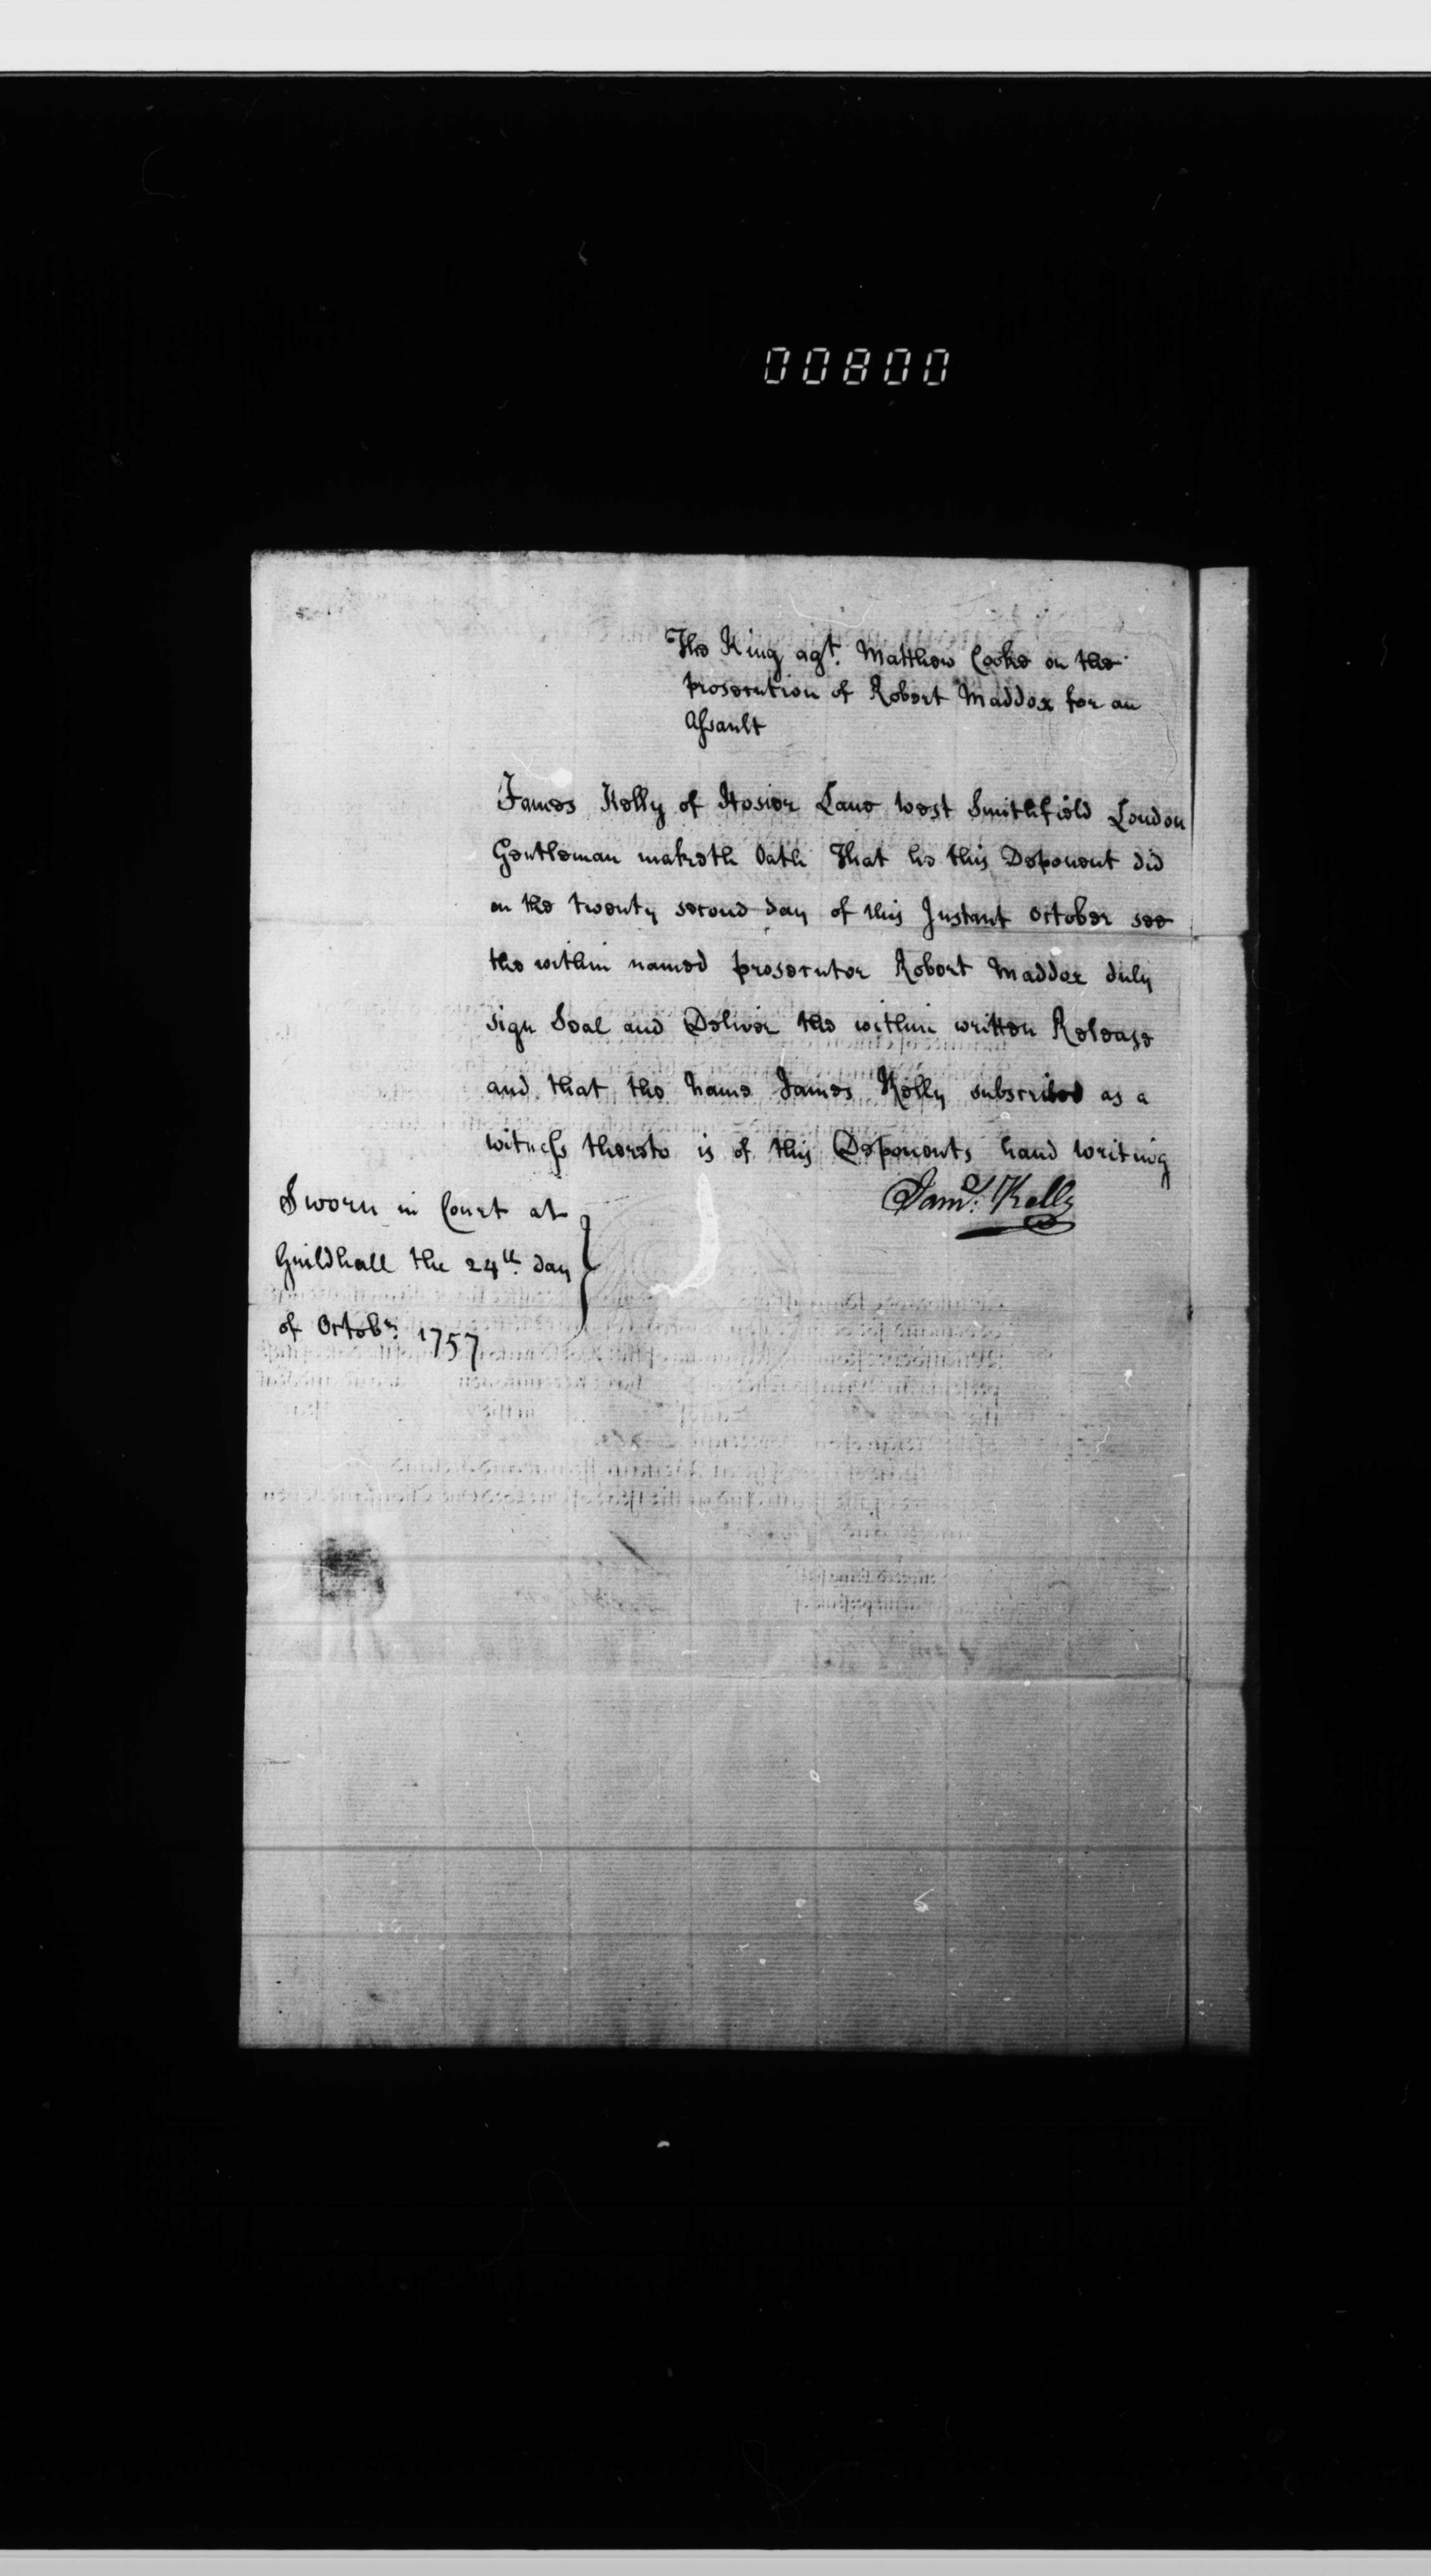 00800
The King agt. Matthew Cooke on the
prosecution of Robert Maddox for an
Assault
James Kelly of Hosier Lane West Smithfield London
Gentleman maketh Oath That he this Deponent did
on the twenty second day of this Instant October see
the within named prosecutor Robert Maddox duly
sign Seal and Deliver the within written Release
and that the Name James Kelly subscribed as a
witness thereto is of this Deponents hand writing
Jams. Kelly
Sworn in Court at
Guildhall the 24th. day
of Octobr. 1757